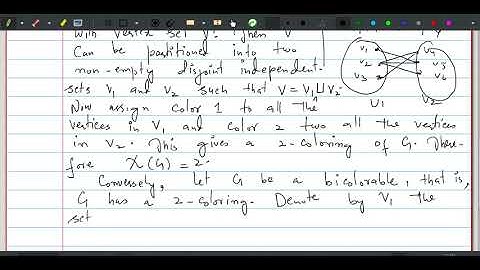 with vertex set V. Then V
Can be partitioned into two
non-empty disjoint independent
sets V1 and V2 such that V = V1 ⊔ V2.
Now assign color 1 to all the
vertices in V1 and color 2 two all the vertices
in V2. This gives a 2-coloring of G. There-
fore χ(G) = 2.
Conversely, let G be a bicolorable, that is,
G has a 2-coloring. Denote by V1 the
set
v1
v2
v3
v5
v6
V1
V2